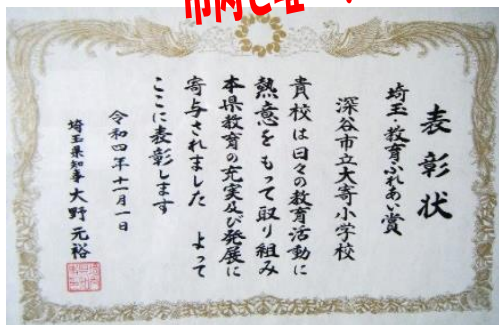 表彰状
埼玉・教育ふれあい賞
深谷市立大寄小学校
貴校は日々の教育活動に
熱意をもって取り組み
本県教育の充実及び発展に
寄与されました　よって
ここに表彰します
令和四年十一月一日
埼玉県知事 大野元裕